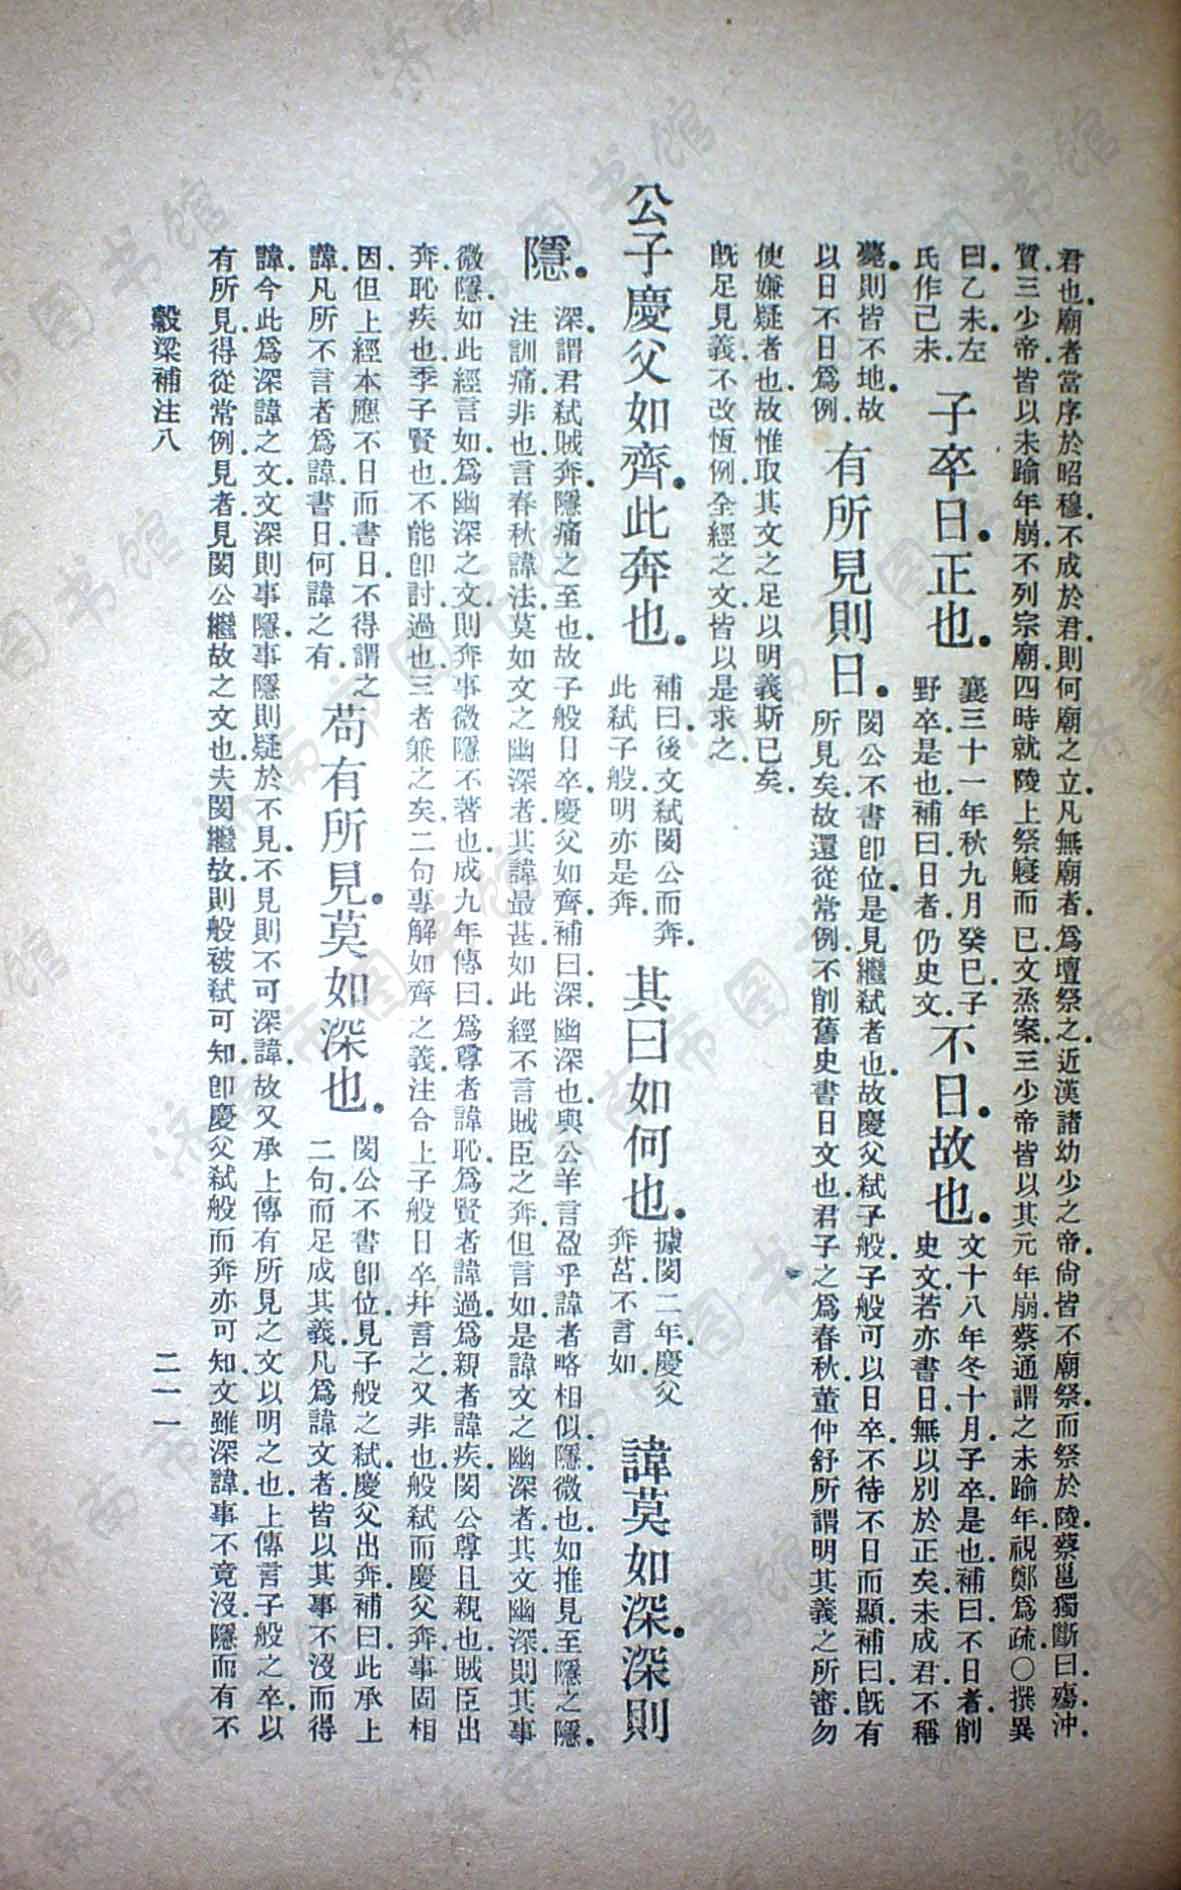 君也.廟者當序於昭穆.不成於君.則何廟之立.凡無廟者.爲壇祭之.近漢諸幼少之帝.尙皆不廟祭.而祭於陵.蔡邕獨斷曰.殤沖.
質.三少帝.皆以未踰年崩.不列宗廟.四時就陵上祭寢而已.文烝案.三少帝皆以其元年崩.蔡通謂之未踰年.視鄭爲疏.○撰異
曰.乙未.左
氏作己未.
子卒日.正也.
襄三十一年秋九月癸巳.子
野卒.是也.補曰.日者.仍史文.
不日.故也.
文十八年冬十月.子卒.是也.補曰.不日者.削
史文.若亦書日.無以別於正矣.未成君.不稱
薨.則皆不地.故
以日不日爲例.
有所見則日.
閔公不書卽位.是見繼弒者也.故慶父弒子般.子般可以日卒.不待不日而顯.補曰.旣有
所見矣.故還從常例.不削舊史書日文也.君子之爲春秋.董仲舒所謂明其義之所審.勿
使嫌疑者也.故惟取其文之足以明義斯已矣.
旣足見義.不改恆例.全經之文.皆以是求之.
公子慶父如齊.此奔也.
補曰.後文弒閔公而奔.
此弒子般.明亦是奔.
其曰如何也.
據閔二年.慶父
奔莒.不言如.
諱莫如深.深則
隱.
深.謂君弒賊奔.隱痛之至也.故子般日卒.慶父如齊.補曰.深.幽深也.與公羊言盈乎諱者略相似.隱.微也.如推見至隱之隱.
注訓痛.非也.言春秋諱法.莫如文之幽深者.其諱最甚.如此經不言賊臣之奔.但言如.是諱文之幽深者.其文幽深.則其事
微隱.如此經言如.爲幽深之文.則奔事微隱不著也.成九年傳曰.爲尊者諱恥.爲賢者諱過.爲親者諱疾.閔公尊且親也.賊臣出
奔.恥疾也.季子賢也.不能卽討.過也.三者兼之矣.二句專解如齊之義.注合上子般日卒幷言之.又非也.般弒而慶父奔.事固相
因.但上經本應不日而書日.不得謂之
諱.凡所不言者爲諱.書日何諱之有.
苟有所見.莫如深也.
閔公不書卽位.見子般之弒.慶父出奔.補曰.此承上
二句而足成其義.凡爲諱文者.皆以其事不沒而得
諱.今此爲深諱之文.文深則事隱.事隱則疑於不見.不見則不可深諱.故又承上傳有所見之文以明之也.上傳言子般之卒.以
有所見.得從常例.見者.見閔公繼故之文也.夫閔繼故.則般被弒可知.卽慶父弒般而奔亦可知.文雖深諱.事不竟沒.隱而有不
穀梁補注八
二一一